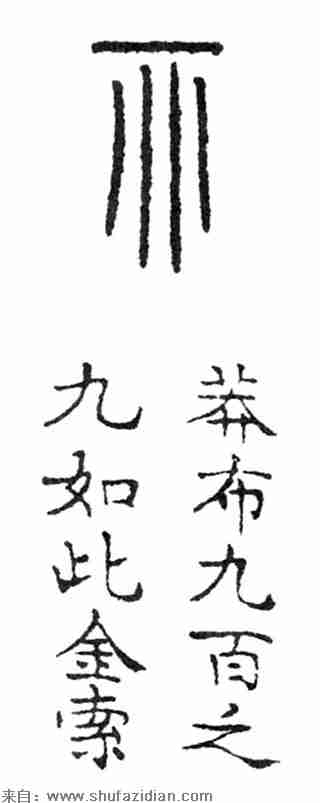 莽布九百之
九如此金索
来自：www.shufazidian.com